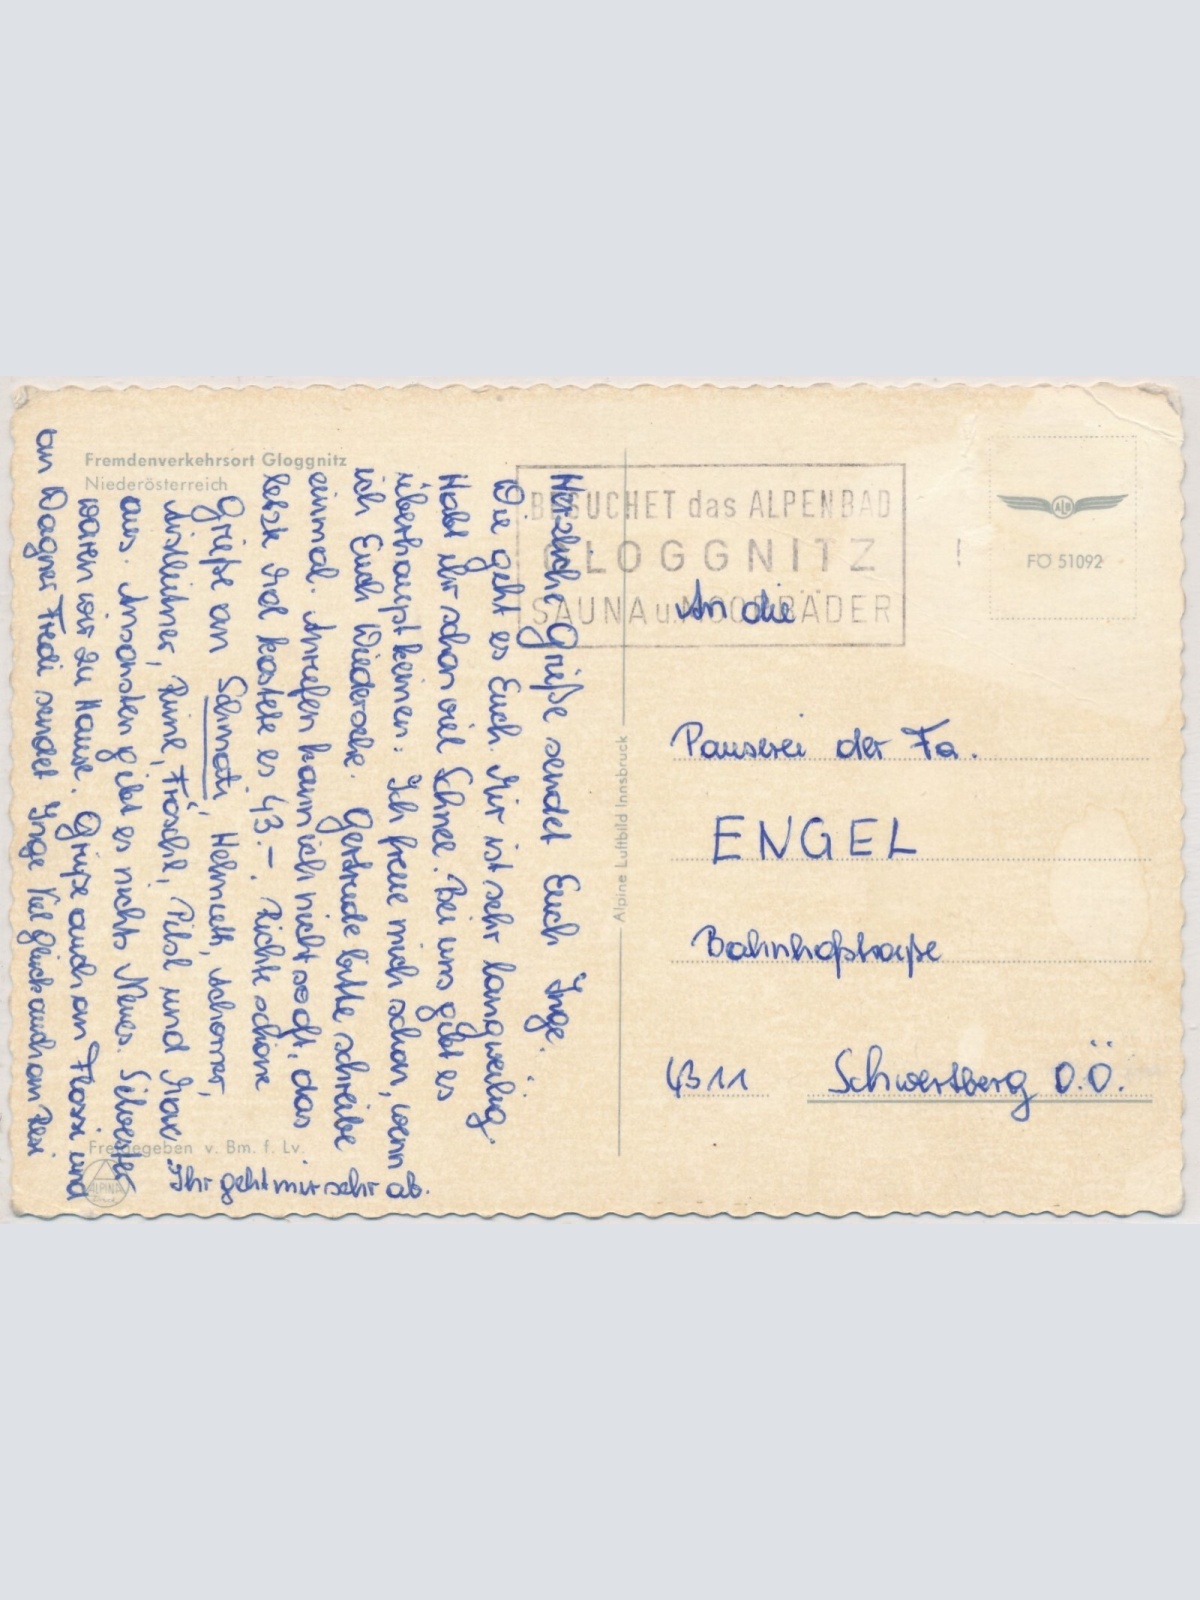 Fremdenverkehrsort Gloggnitz
Niederösterreich
Herzliche Grüße sendet Euch Inge.
Wie geht es Euch. Mir ist sehr langweilig.
Habt ihr schon viel Schnee. Bei uns gibt es
überhaupt keinen. Ich freue mich schon, wenn
ich Euch Wiedersehe. Gertrude bitte schreibe
einmal. Anrufen kann ich nicht so oft, das
letzte Mal kostete es 43.-. Richte schöne
Grüße an Schnati, Helmuth, Schorner,
Aistleitner, Fröschl, Pilsl und Max
aus. Ansonsten gibt es nichts Neues. Silvester
waren wir zu Hause. Grüße auch an Flossi und
an Wagner Fredi sendet Inge Viel Glück auch am Resi
Ihr geht mir sehr ab.
Freigegeben v. Bm. f. Lv.
ALPINA
Alpine Luftbild Innsbruck
BESUCHET das ALPENBAD
GLOGGNITZ !
SAUNA u. MOORBÄDER
ALB
FÖ 51092
An die
Pauserei der Fa.
ENGEL
Bahnhofstraße
4311 Schwertberg O.Ö.